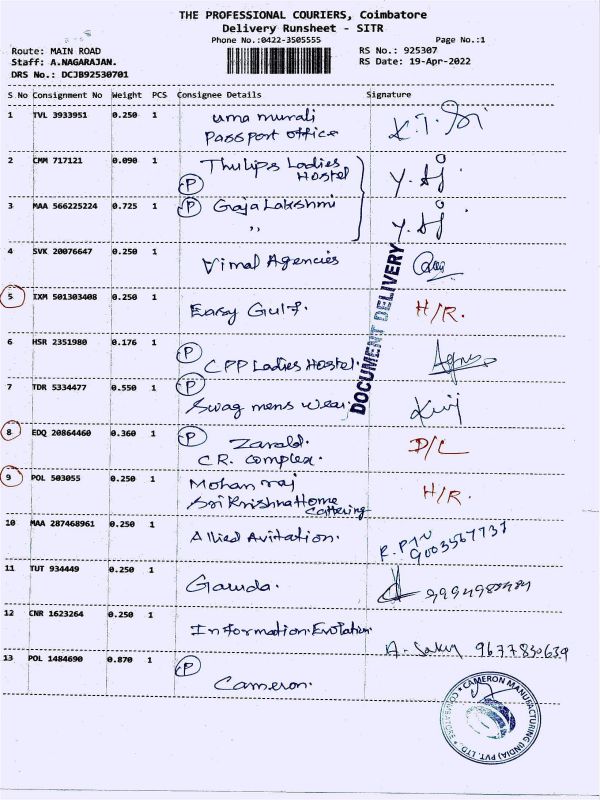 THE PROFESSIONAL COURIERS, Coimbatore
Delivery Runsheet - SITR
Phone No.:0422-3505555 Page No.:1
Route: MAIN ROAD RS No.: 925307
Staff: A.NAGARAJAN. RS Date: 19-Apr-2022
DRS No.: DCJB92530701
S No Consignment No Weight PCS Consignee Details Signature
1 TVL 3933951 0.250 1 uma murali
Passport office
2 CMM 717121 0.090 1 Thulips Ladies
Hostel
P
3 MAA 566225224 0.725 1 P Gaja Lakshmi
"
4 SVK 20076647 0.250 1 Vimal Agencies
DOCUMENT DELIVERY
5 IXM 501303408 0.250 1 Easy Gulf. H/R.
6 HSR 2351980 0.176 1 P
CPP Ladies Hostel.
7 TDR 5334477 0.550 1 P
Swag mens wear.
8 EDQ 20864460 0.360 1 P Zarald. D/L
C.R. Complex.
9 POL 503055 0.250 1 Mohan raj H/R.
Sri Krishna Home
Cattering
10 MAA 287468961 0.250 1 Allied Avitation.
9003567737
11 TUT 934449 0.250 1 Garuda.
12 CNR 1623264 0.250 1 Information Evolution
9677830639
13 POL 1484690 0.870 1 P
Cameron.
CAMERON MANUFACTURING (INDIA) PVT. LTD. * COIMBATORE *